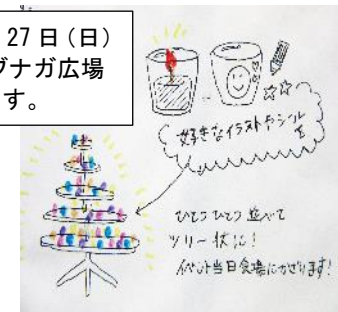 27日(日)
ブナガ広場
す。
好きなイラストやシールを
ひとつひとつ並べて
ツリー状に!
イベント当日会場にかざります!